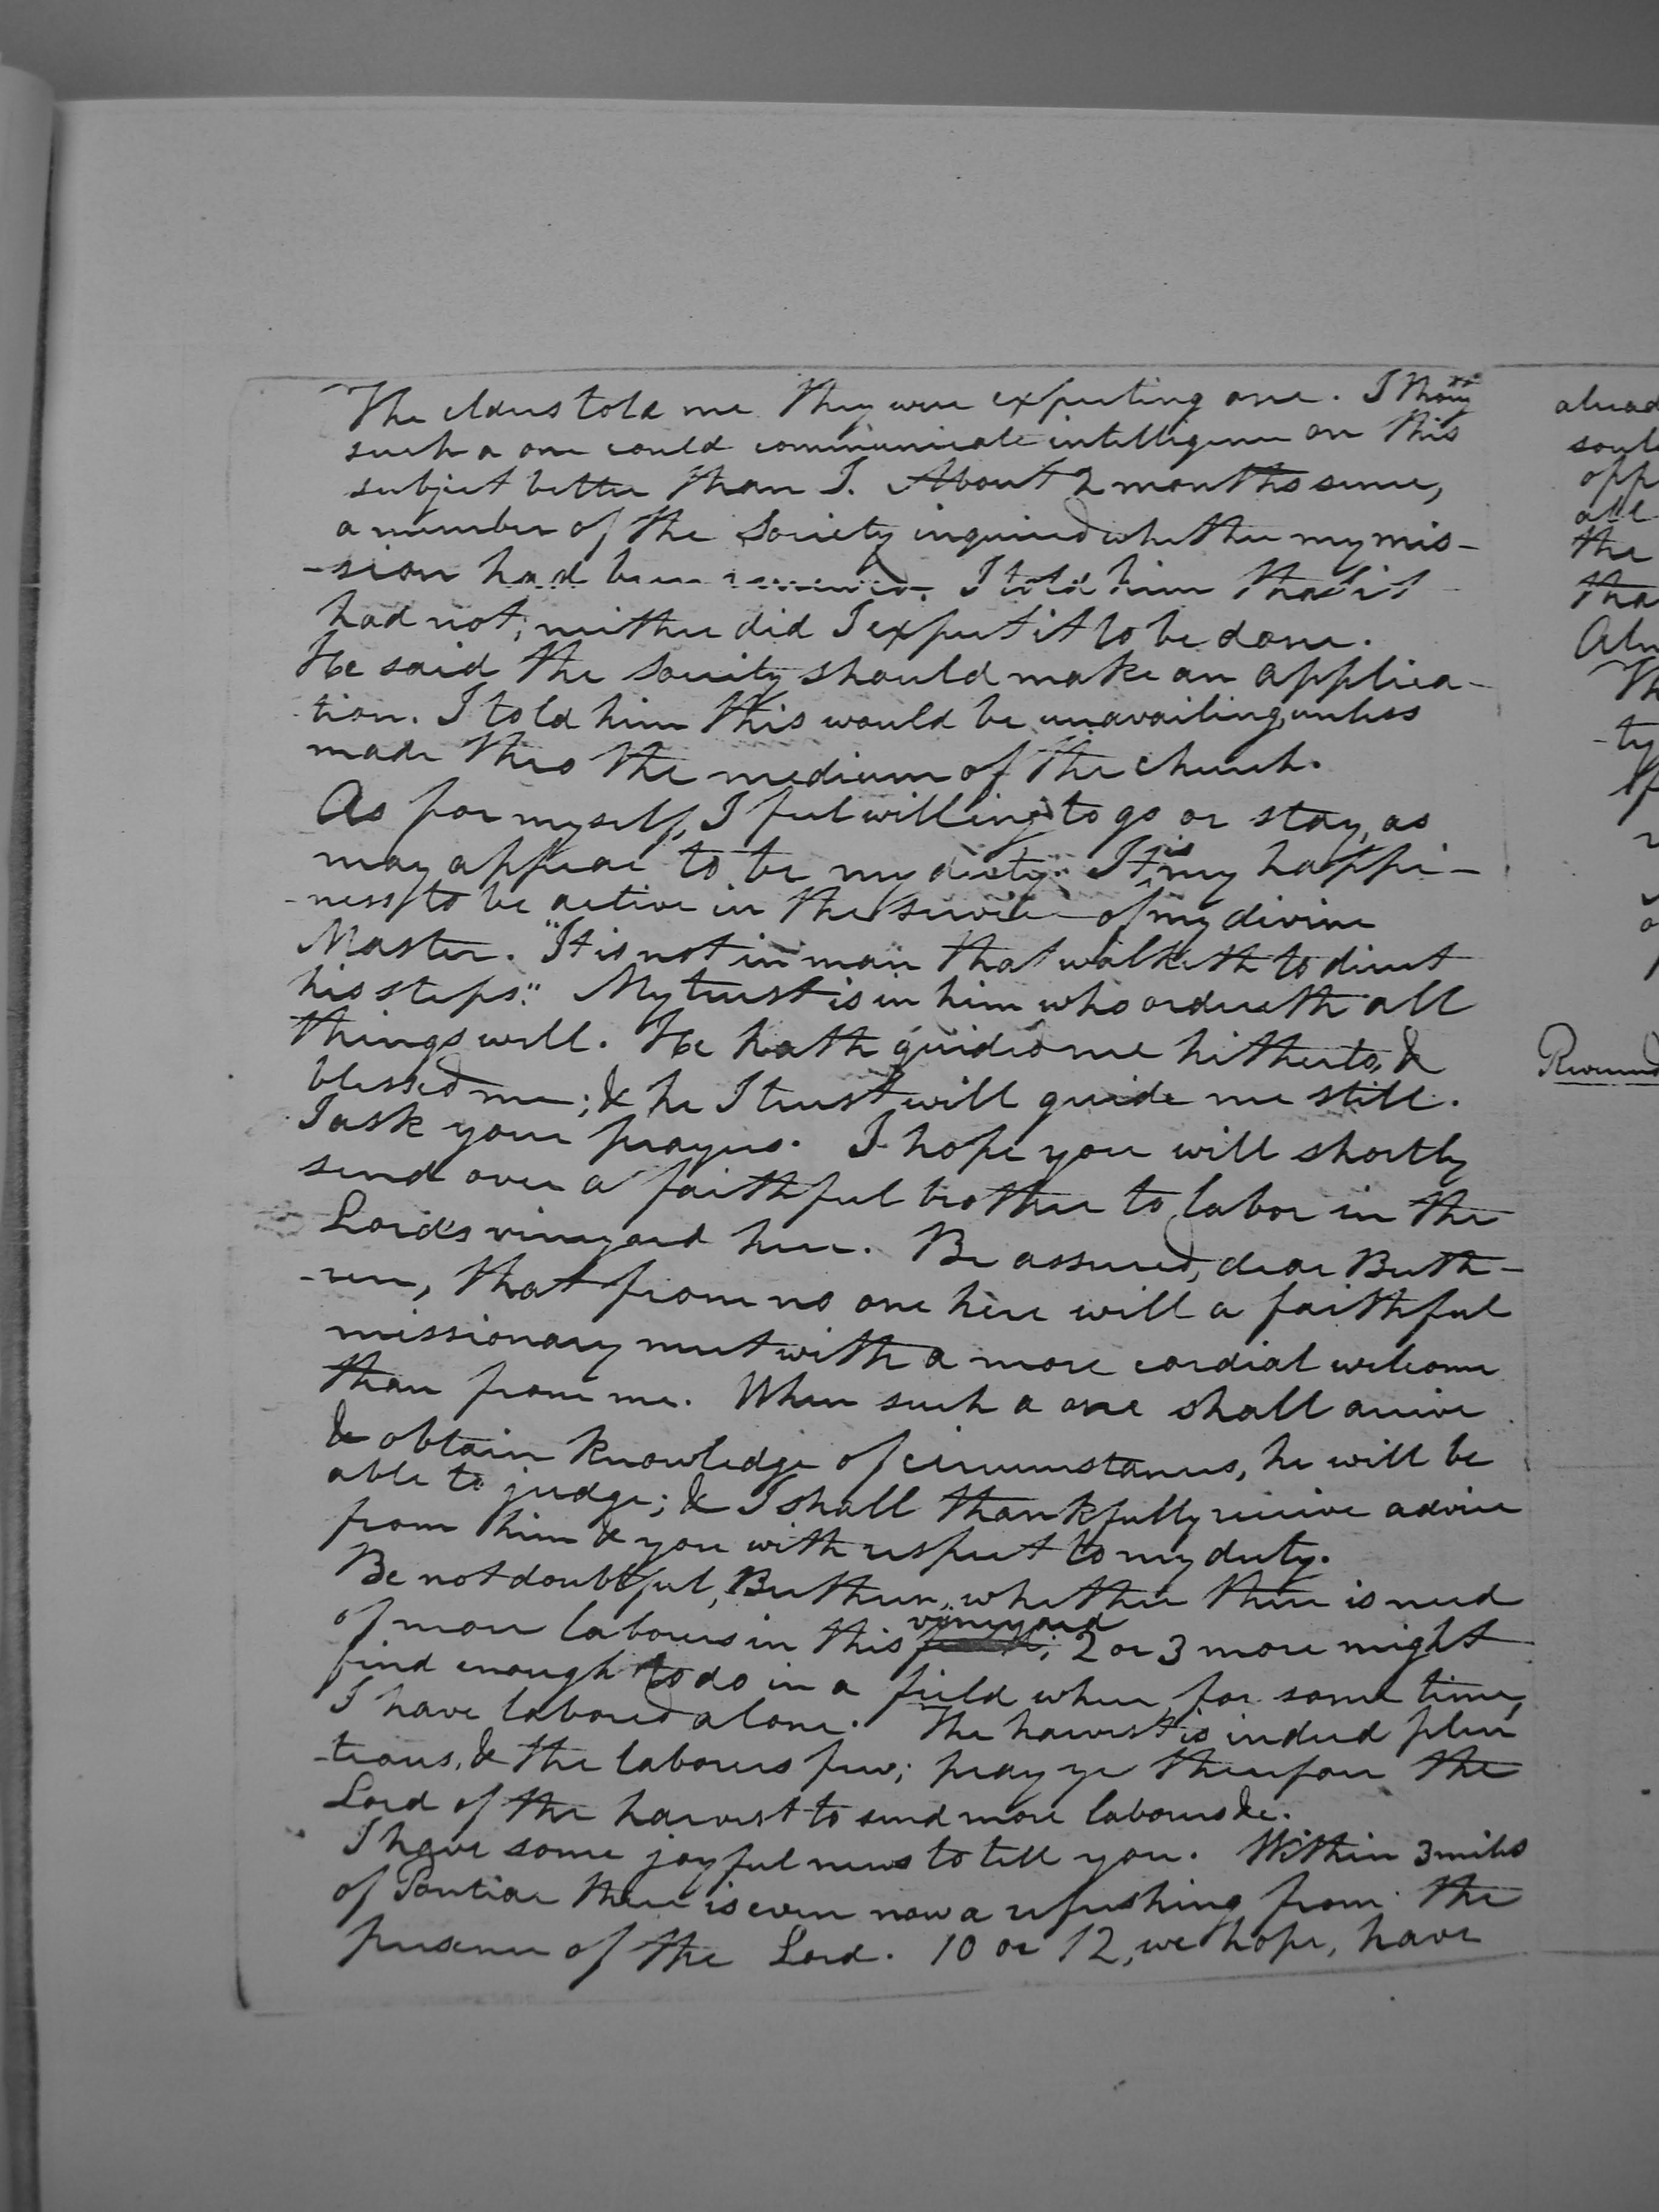 The elders told me they were expecting one. I thou't
such a one could communicate intelligence on this
subject better than I. About 2 months since,
a member of the Society inquired whether my mis-
-sion had been renewed. I told him that it
had not; neither did I expect it to be done.
He said the Society should make an applica-
tion. I told him this would be unavailing, unless
made thro the medium of the church.
As for myself, I feel willing to go or stay, as
may appear to be my duty. It is my happi-
-ness to be active in the service of my divine
Master. "It is not in man that walketh to direct
his steps." My trust is in him who ordereth all
things well. He hath guided me hitherto, &
blessed me; & he I trust will guide me still.
I ask your prayers. I hope you will shortly
send over a faithful brother to labor in the
Lord's vineyard here. Be assured, dear Breth-
-ren, that from no one here will a faithful
missionary meet with a more cordial welcome
than from me. When such a one shall arrive
& obtain knowledge of circumstances, he will be
able to judge; & I shall thankfully receive advice
from him & you with respect to my duty.
Be not doubtful, Brethren, whether there is need
of more laborers in this vineyard; 2 or 3 more might
find enough to do in a field where, for some time,
I have labored alone. The harvest is indeed plen
-teous, & the laborers few; pray ye therefore the
Lord of the harvest to send more laborers &c.
I have some joyful news to tell you. Within 3 miles
of Pontiac there is even now a refreshing from the
presence of the Lord. 10 or 12, we hope, have
alread
soul
opp
all
the
tha
Th
-ty